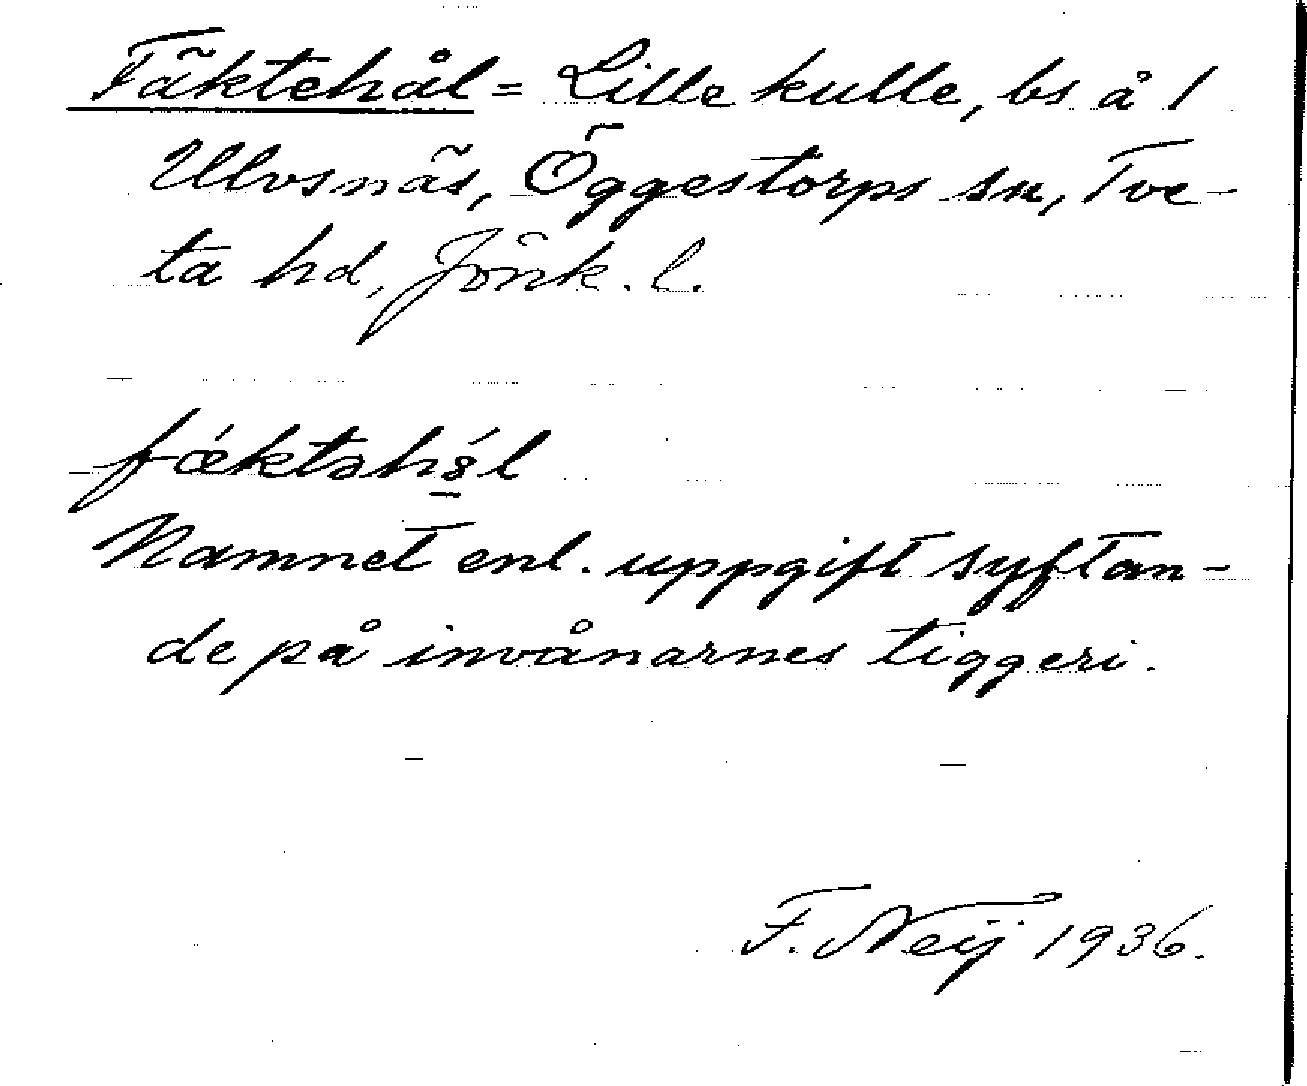 Fäktehål = Lille kulle, bs å 1
Ulvsnäs, Öggestorps sn, Tve-
ta hd, Jönk. l.
Namnet enl. uppgift syftan-
de på invånarnes tiggeri.
F. Neij 1936.